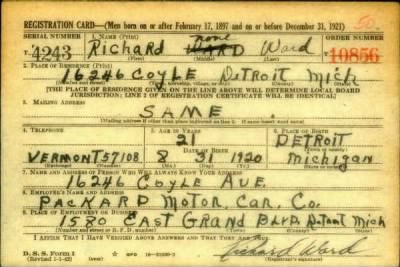 REGISTRATION CARD—(Men born on or after February 17, 1897 and on or before December 31, 1921)
SERIAL NUMBER 1. NAME (Print) ORDER NUMBER
T. 4243 Richard WARD none Ward T. 10856
(First) (Middle) (Last)
2. PLACE OF RESIDENCE (Print)
16246 COYLE DETROIT MICH
[THE PLACE OF RESIDENCE GIVEN ON THE LINE ABOVE WILL DETERMINE LOCAL BOARD
JURISDICTION; LINE 2 OF REGISTRATION CERTIFICATE WILL BE IDENTICAL]
3. MAILING ADDRESS
SAME
[Mailing address if other than place indicated on line 2. If same insert word same]
4. TELEPHONE 5. AGE IN YEARS 6. PLACE OF BIRTH
21 DETROIT
DATE OF BIRTH
VERMONT 57108 8 31 1920 Michigan
(Exchange) (Number) (Mo.) (Day) (Yr.) (State or country)
7. NAME AND ADDRESS OF PERSON WHO WILL ALWAYS KNOW YOUR ADDRESS
16246 Coyle AVE.
8. EMPLOYER'S NAME AND ADDRESS
PACKARD MOTOR. CAR. CO.
9. PLACE OF EMPLOYMENT OR BUSINESS
1580 EAST GRAND BLVD. Detroit Mich
I AFFIRM THAT I HAVE VERIFIED ABOVE ANSWERS AND THAT THEY ARE TRUE.
D. S. S. Form 1
(Revised 1-1-42) Richard Ward